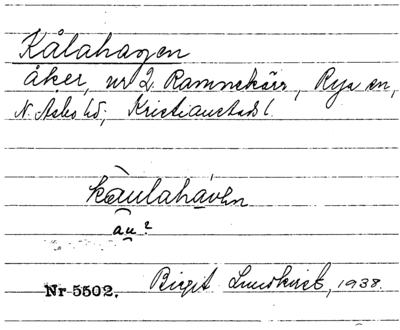 Kålahagen
åker, nr 2 Ramnekärr, Rya sn,
N. Åsbo hd, Kristianstads l.
kàulahávҽn
au?
Nr 5502. Birgit Lundkvist, 1938.